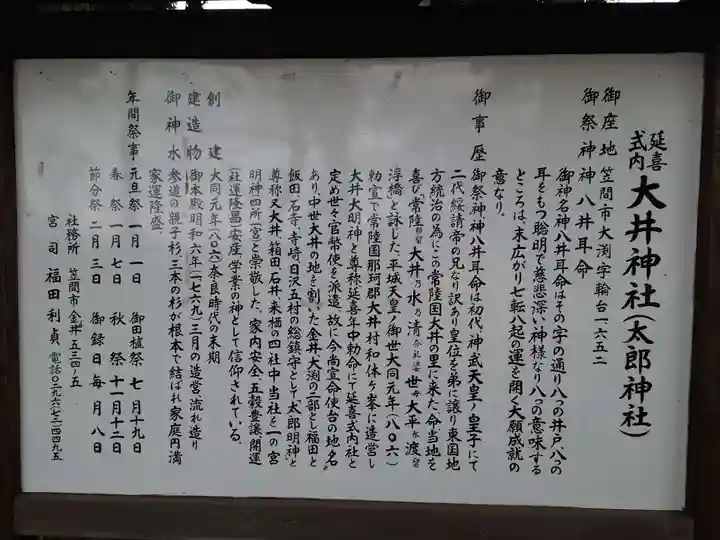 延喜式内 大井神社(太郎神社)
御座地 笠間市大渕字輪台一六五二
御祭神 神八井耳命
御神名神八井耳命はその字の通り八つの井戸八つの
耳をもつ聡明で慈悲深い神様なり八つの意味する
ところは、末広がり七転八起の運を開く大願成就の
意なり。
御事歴 御祭神神八井耳命は初代、神武天皇ノ皇子にて
二代綏靖帝の兄なり訳あり皇位を弟に譲り東国地
方統治の為にこの常陸国大井の里に来た、命当地を
喜び「常陸 大井乃水乃清 世 大平 渡
浮橋」と詠した、平城天皇ノ御世大同元年(八〇六)
勅宣で常陸国那珂郡大井村和体ヶ峯に造営し
大井大明神と尊称延喜年中勅命にて延喜式内社と
定め世々官幣使を派遣、故に今尚宣命使台の地名
あり、中世大井の地を割いた金井大渕の二部とし福田と
飯田、石寺、寺崎、日沢五村の総鎮守として「太郎明神」と
尊称又大井 箱田 石井 来栖の四社中当社を一の宮
明神四所一宮と崇敬した、家内安全、五穀豊穣開運
(社運隆昌)安産、学業の神として信仰されている。
創建 大同元年(八〇六)奈良時代の末期
建造物 御本殿明和六年(一七六九)三月の造営、流れ造り
御神水 参道の親子杉、三本の杉が根本で結ばれ家庭円満
家運隆盛。
年間祭事 元旦祭 一月一日 御田植祭 七月十九日
春祭 一月七日 秋祭 十一月十二日
節分祭 二月三日 御録日 毎月八日
社務所 笠間市金井五三四ノ五
宮司 福田利貞 電話〇二九六七二一四四九五